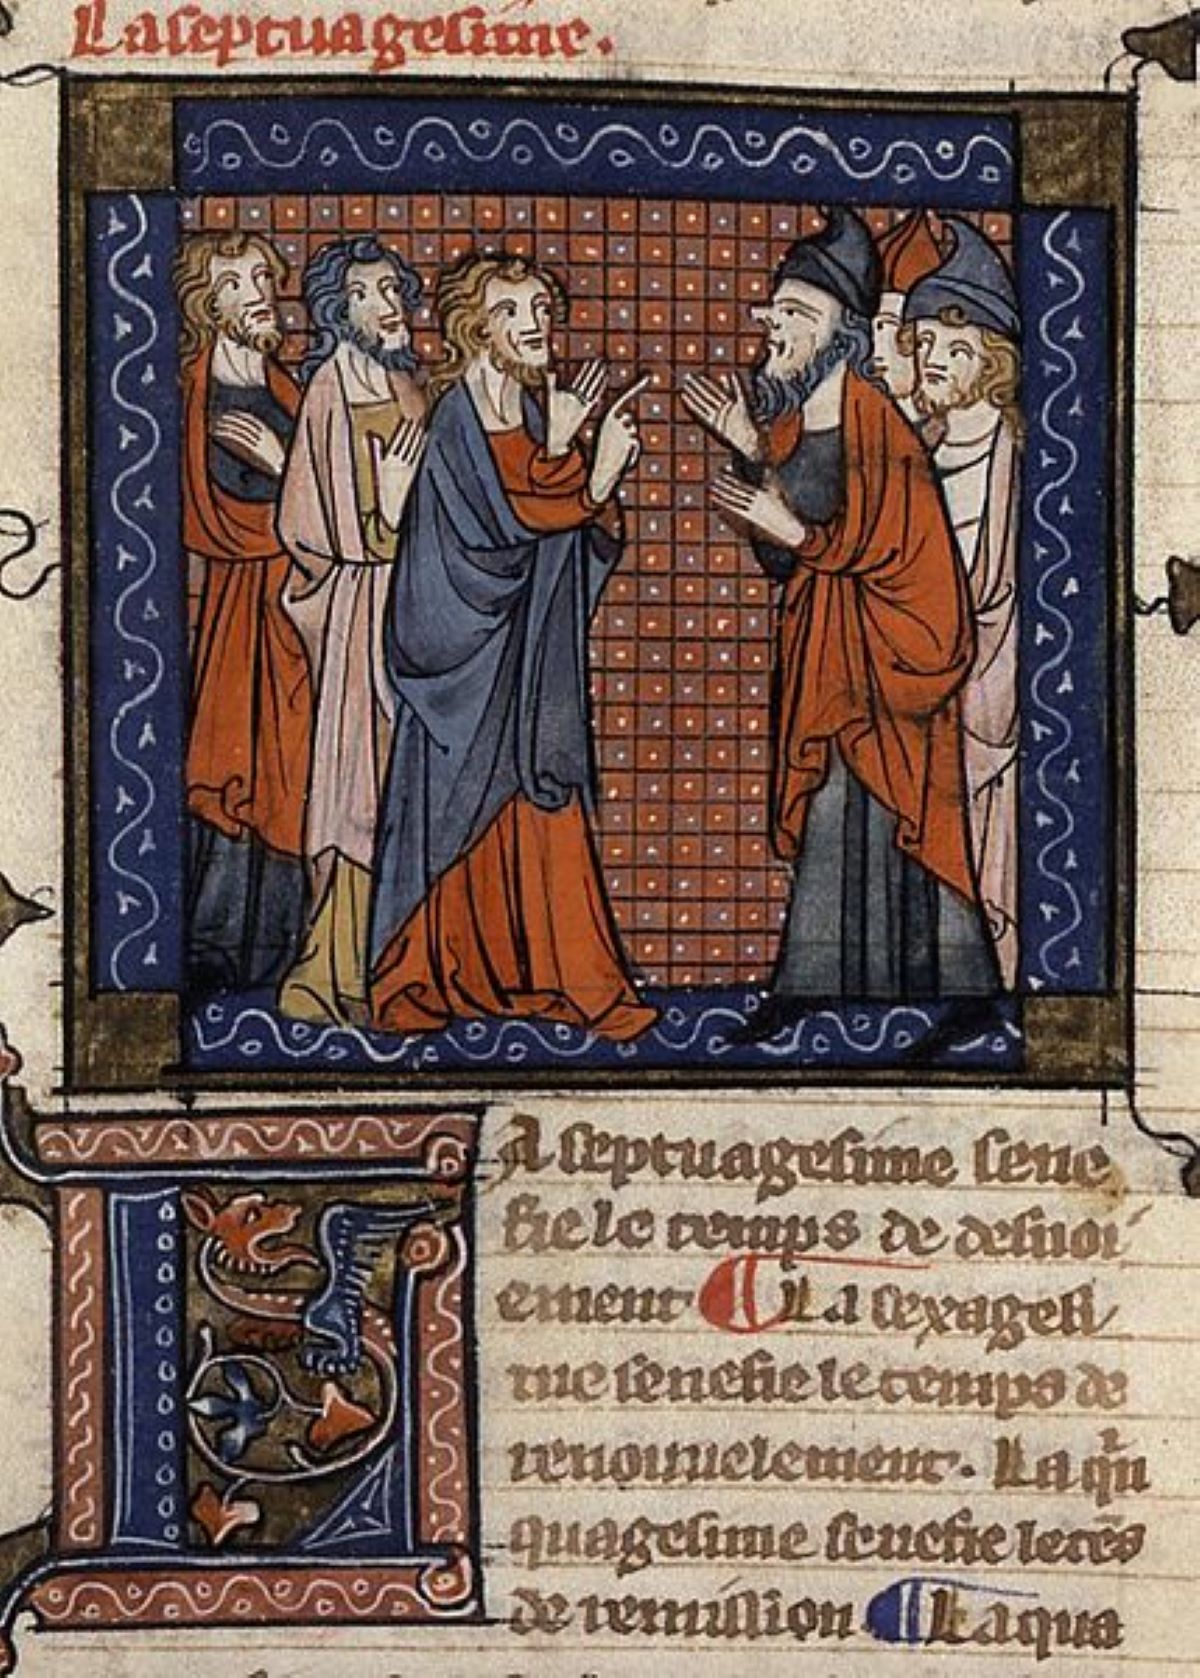 La septuagesime.
La septuagesime sene
fie le temps de desuoi
ement ¶ La sexagesi
me senefie le temps de
renouuelement. La qⁱn
quagesime senefie le tēs
de remission ¶ La qua